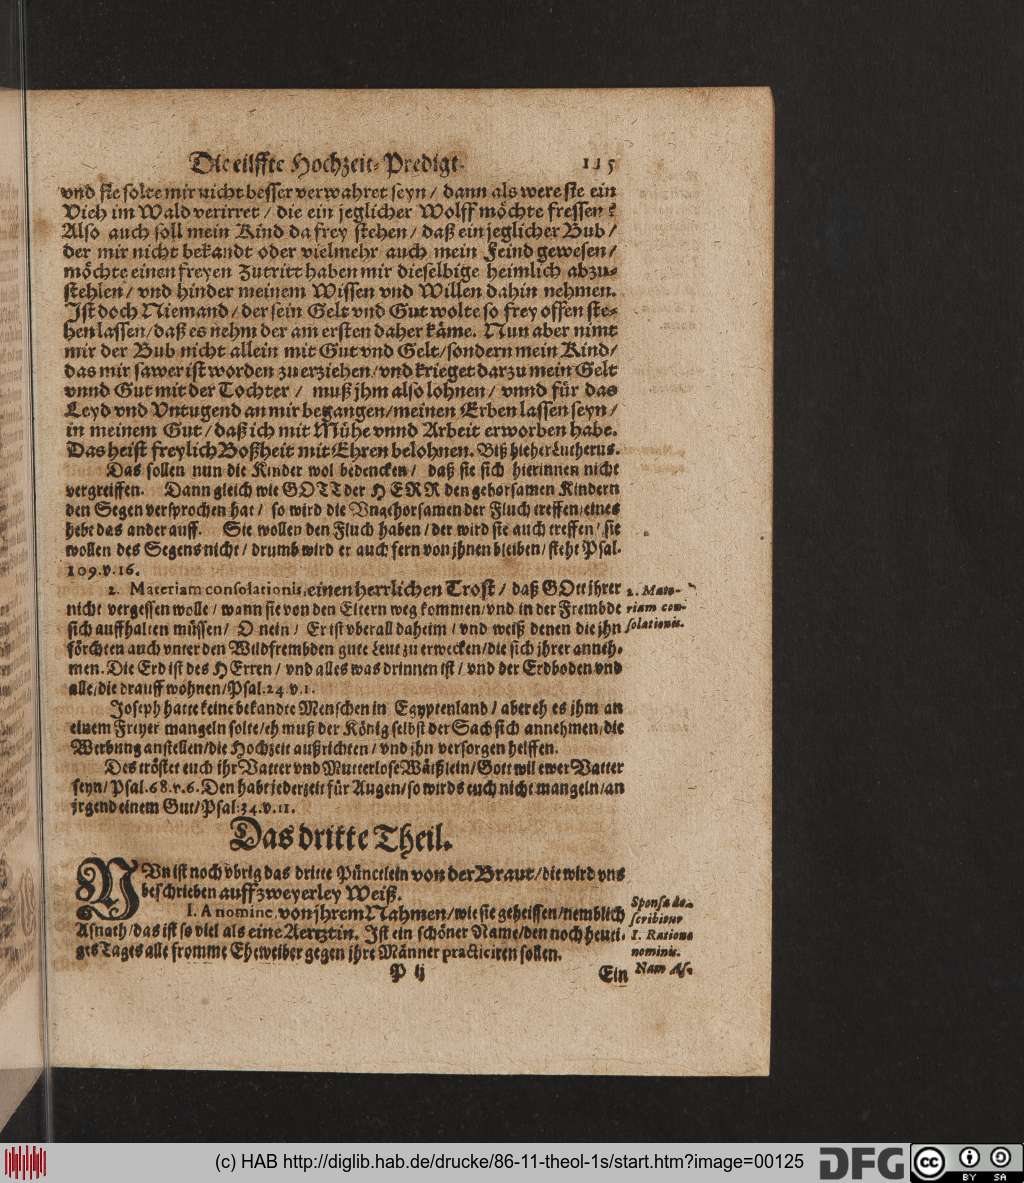 Die eilffte Hochzeit-Predigt. 115
vnd sie solte mir nicht besser verwahret seyn / dann als were sie ein
Vieh im Wald verirret / die ein jeglicher Wolff möchte fressen?
Also auch soll mein Kind da frey stehen / daß ein jeglicher Bub /
der mir nicht bekandt oder vielmehr auch mein Feind gewesen /
möchte einen freyen Zutritt haben mir dieselbige heimlich abzu-
stehlen / vnd hinder meinem Wissen vnd Willen dahin nehmen.
Ist doch Niemand / der sein Gelt vnd Gut wolte so frey offen ste-
hen lassen / daß es nehm der am ersten daher käme. Nun aber nimt
mir der Bub nicht allein mit Gut vnd Gelt / sondern mein Kind /
das mir sawer ist worden zu erziehen / vnd krieget darzu mein Gelt
vnnd Gut mit der Tochter / muß jhm also lohnen / vnnd für das
Leyd vnd Vntugend an mir begangen / meinen Erben lassen seyn /
in meinem Gut / daß ich mit Mühe vnnd Arbeit erworben habe.
Das heist freylich Boßheit mit Ehren belohnen. Biß hieher Lutherus.
Das sollen nun die Kinder wol bedencken / daß sie sich hierinnen nicht
vergreiffen. Dann gleich wie GOTT der HERR den gehorsamen Kindern
den Segen versprochen hat / so wird die Vngehorsamen der Fluch treffen / eines
hebt das ander auff. Sie wollen den Fluch haben / der wird sie auch treffen / sie
wollen des Segens nicht / drumb wird er auch fern von jhnen bleiben / steht Psal.
109. v. 16.
2. Materiam consolationis, einen herrlichen Trost / daß GOtt jhrer
nicht vergessen wolle / wann sie von den Eltern weg kommen / vnd in der Frembde
sich auffhalten müssen / O nein / Er ist vberall daheim / vnd weiß denen die jhn
förchten auch vnter den Wildfrembden gute Leut zu erwecken / die sich jhrer anneh-
men. Die Erd ist des HErren / vnd alles was drinnen ist / vnd der Erdboden vnd
alle / die drauff wohnen / Psal. 24. v. 1.
2. Mate-
riam con-
solationis.
Joseph hatte keine bekandte Menschen in Egyptenland / aber eh es jhm an
einem Freyer mangeln solte / eh muß der König selbst der Sach sich annehmen / die
Werbung anstellen / die Hochzeit außrichten / vnd jhn versorgen helffen.
Des tröstet euch ihr Vatter vnd Mutterlose Wäißlein / Gott wil ewer Vatter
seyn / Psal. 68. v. 6. Den habt jederzeit für Augen / so wirds euch nicht mangeln / an
jrgend einem Gut / Psal. 34. v. 11.
Das dritte Theil.
NVn ist noch vbrig das dritte Pünctlein von der Braut / die wird vns
beschrieben auff zweyerley Weiß.
I. A nomine, von jhrem Nahmen / wie sie geheissen / nemblich
Asnath / das ist so viel als eine Aertztin. Ist ein schöner Name / den noch heuti-
ges Tages alle fromme Eheweiber gegen jhre Männer practiciren sollen.
Sponsa de-
scribitur
I. Ratione
nominis.
Nam As-
P ij Ein
(c) HAB http://diglib.hab.de/drucke/86-11-theol-1s/start.htm?image=00125
DFG
cc BY SA